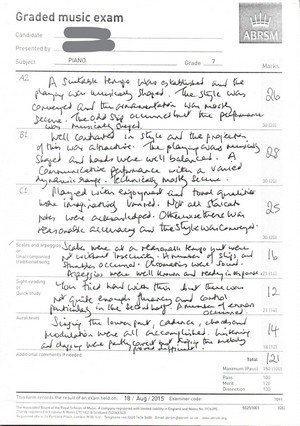 Graded music exam
Candidate
Presented by
ABRSM
Subject PIANO Grade 7 Marks
A2 A suitable tempo was established and the
playing was musically shaped. The style was
conveyed and the ornamentation was mostly
secure. The odd slip occurred but the performance
was musically shaped. 26
30 (20)
B1 Well contrasted in style and the projection
of this was attractive. The playing was musically
shaped and hands were well balanced. A
communicative performance with a varied
dynamic range. Technically mostly secure. 28
30 (20)
C1 Played with enjoyment and tonal qualities
were imaginatively varied. Not all staccato
notes were acknowledged. Otherwise there was
reasonable accuracy and the style was conveyed. 25
30 (20)
Scales and arpeggios
or
Unaccompanied
traditional song
Scales were at a reasonable tempo but were
not without insecurity. A number of slips and
occurred. Chromatics were sound.
Arpeggios were well known and ready in response 16
21 (14)
Sight-reading
or
Quick study
You tried hard with this but there was
not quite enough fluency and control
particularly in the second half. A number of errors
occurred. 12
21 (14)
Aural tests
Singing the lower part, cadence, chords and
modulation were all accomplished.
and clapping were partly correct but
proved difficult. 14
18 (12)
Additional comments (if needed)
Total 121
Maximum (Pass) 150 (100)
Pass 100
Merit 120
Distinction 130
This form records the result of an exam held on 18 / Aug / 2015 Examiner code: